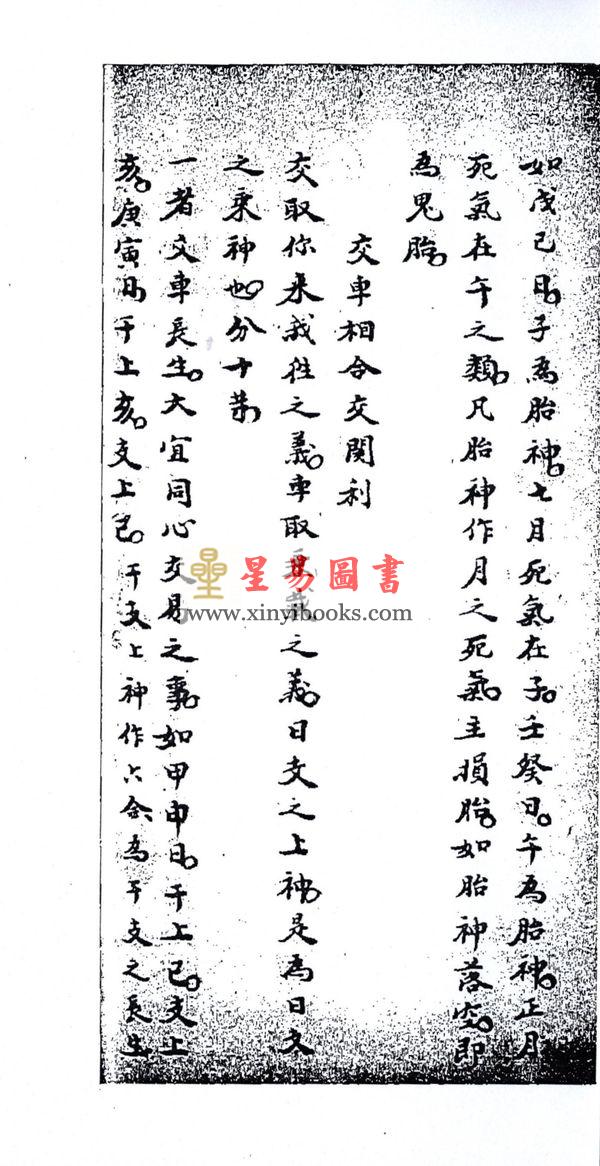 如戊己日。子為胎神。七月死氣在子。壬癸日。午為胎神。正月
死氣在午之類。凡胎神作月之死氣。主損胎。如胎神落空。即
為鬼胎。
交車相合交関利
交取你來我往之義。車取之義。日支之上神。是為日支
之乘神也。分十等
一者交車長生。大宜同心交易之事。如甲申日。干上巳。支上
亥。庚寅日。干上亥。支上巳。干支上神作六合。為干支之長生
星易圖書
www.xinyibooks.com